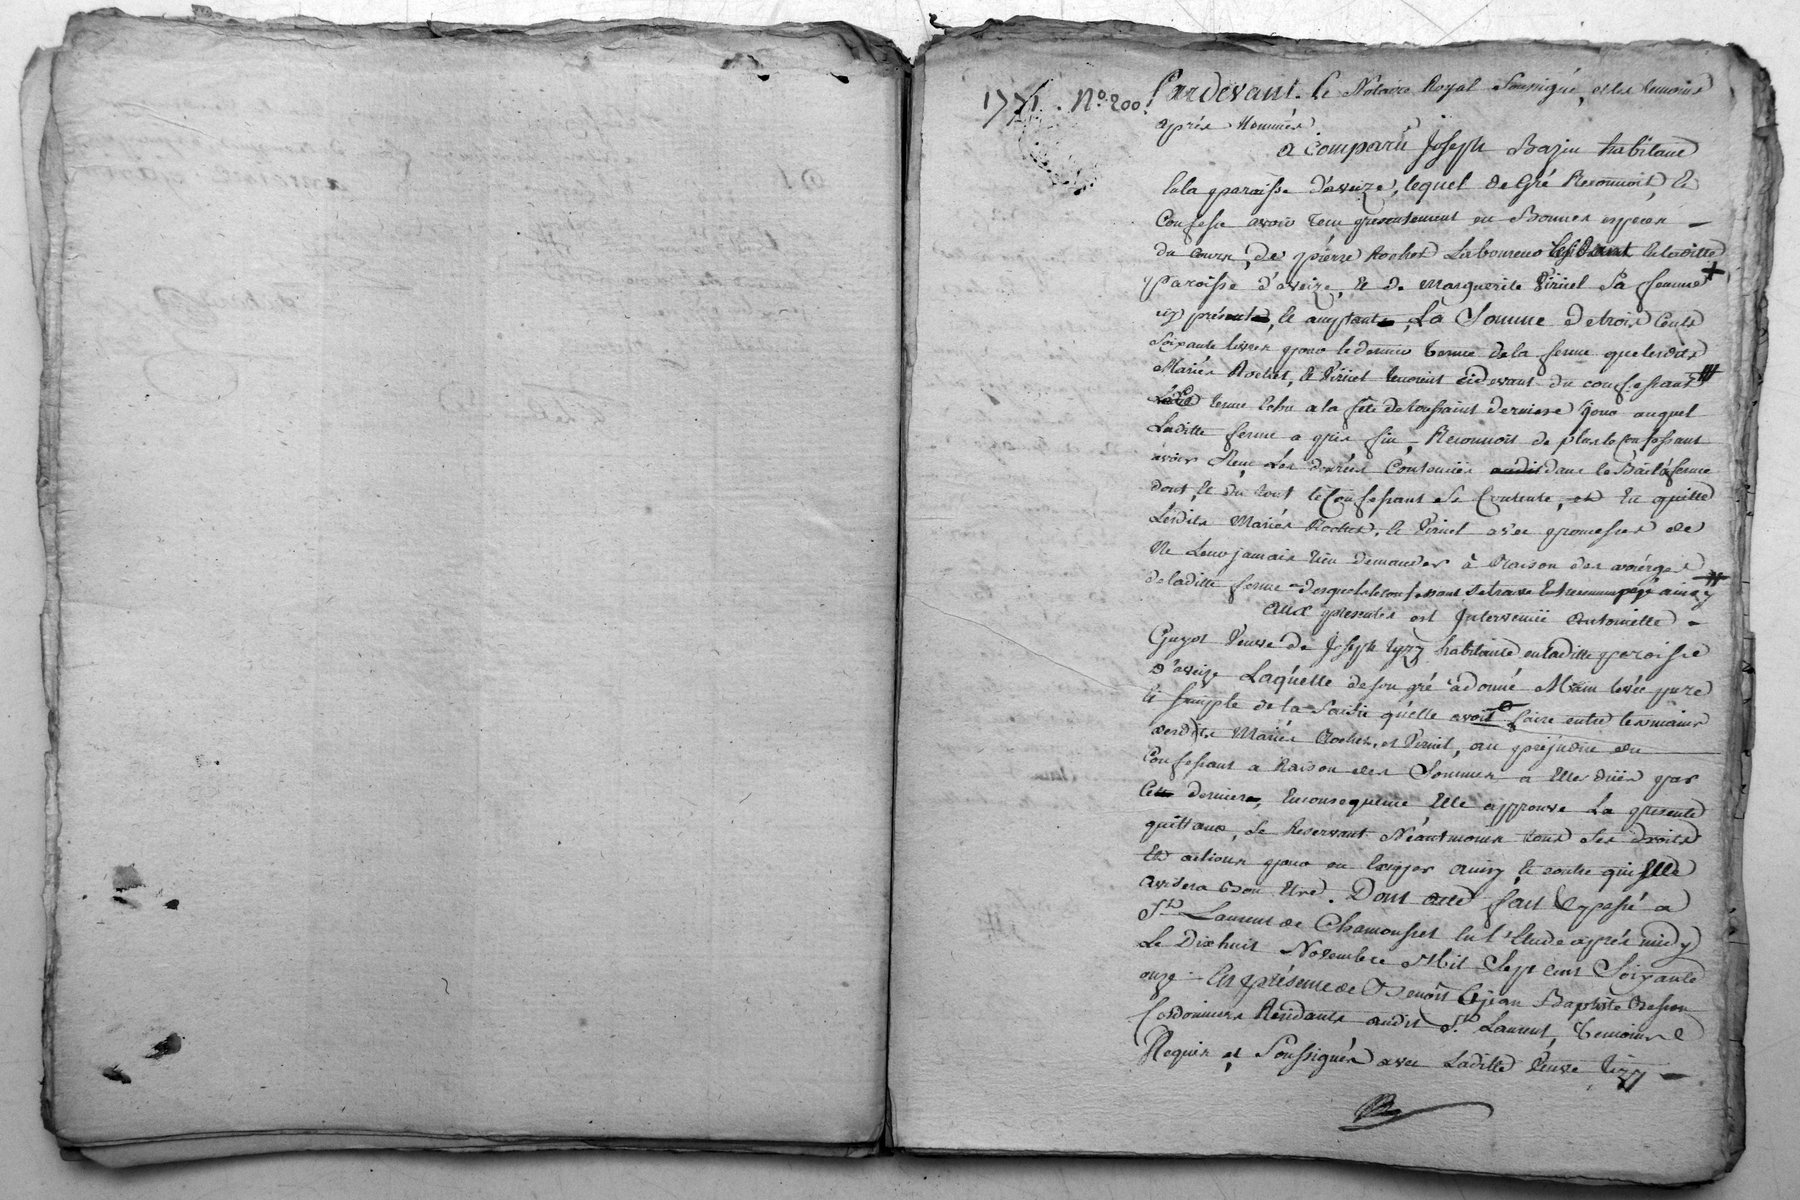 1771. N.º 200.
Pardevant. Le Notaire Royal Soussigné, et les temoins
après Nommés
a comparû Joseph Bazin habitant
la paroisse d'aveize, lequel de Gré Reconnoit, &
Confesse avoir Recu presentement en Bonnes especes
du cours, de pierre Rochet Laboureur Residant en laditte
paroisse d'aveize, & de Marguerite Viriciel Sa femme
icy présente, & acceptante, La Somme de trois Cents
Soixante Livres pour le dernier terme de la ferme que lesdits
Mariés Rochet, & tenoient cidevant du confessant
terme Echu a la fête de toussaint derniere jour auquel
Laditte ferme a pris fin, Reconnoit de plus le Confessant
avoir Recu Les denrées Contenües dans le Bail à ferme
dont & du tout le Confessant Se Contente, et En quitte
Lesdits Mariés Rochet, & avec promesses de
Ne Leur jamais Rien demander à Raison des
de laditte ferme desquels le confessant Se trouve Entierement payé ainsy
aux presentes est Intervenüe antoinette
Guyot Veuve de Joseph habitante en laditte paroisse
D'aveize Laquelle de son gré a donné Main levée pure
& Simple de la Saisie qu'elle avoit faire entre les mains
desdits Mariés Rochet, et au prejudice du
Confessant a Raison des Sommes a Elle düës par
Ce dernier, Enconsequence Elle approuve La presente
quittance, Se Reservant Néantmoins tous Ses droits
Et actions pour en ainsy & contre qui Elle
avisera Bon Etre. Dont acte fait & passé a
St. Laurent de Chamousset En l'Etude après midy
Le Dixhuit Novembre Mil Sept cent Soixante
onze. En présence de Benoit & jean Baptiste
Cordonniers Résidants audit St. Laurent, temoins
Requis et Soussignés avec Laditte Veuve